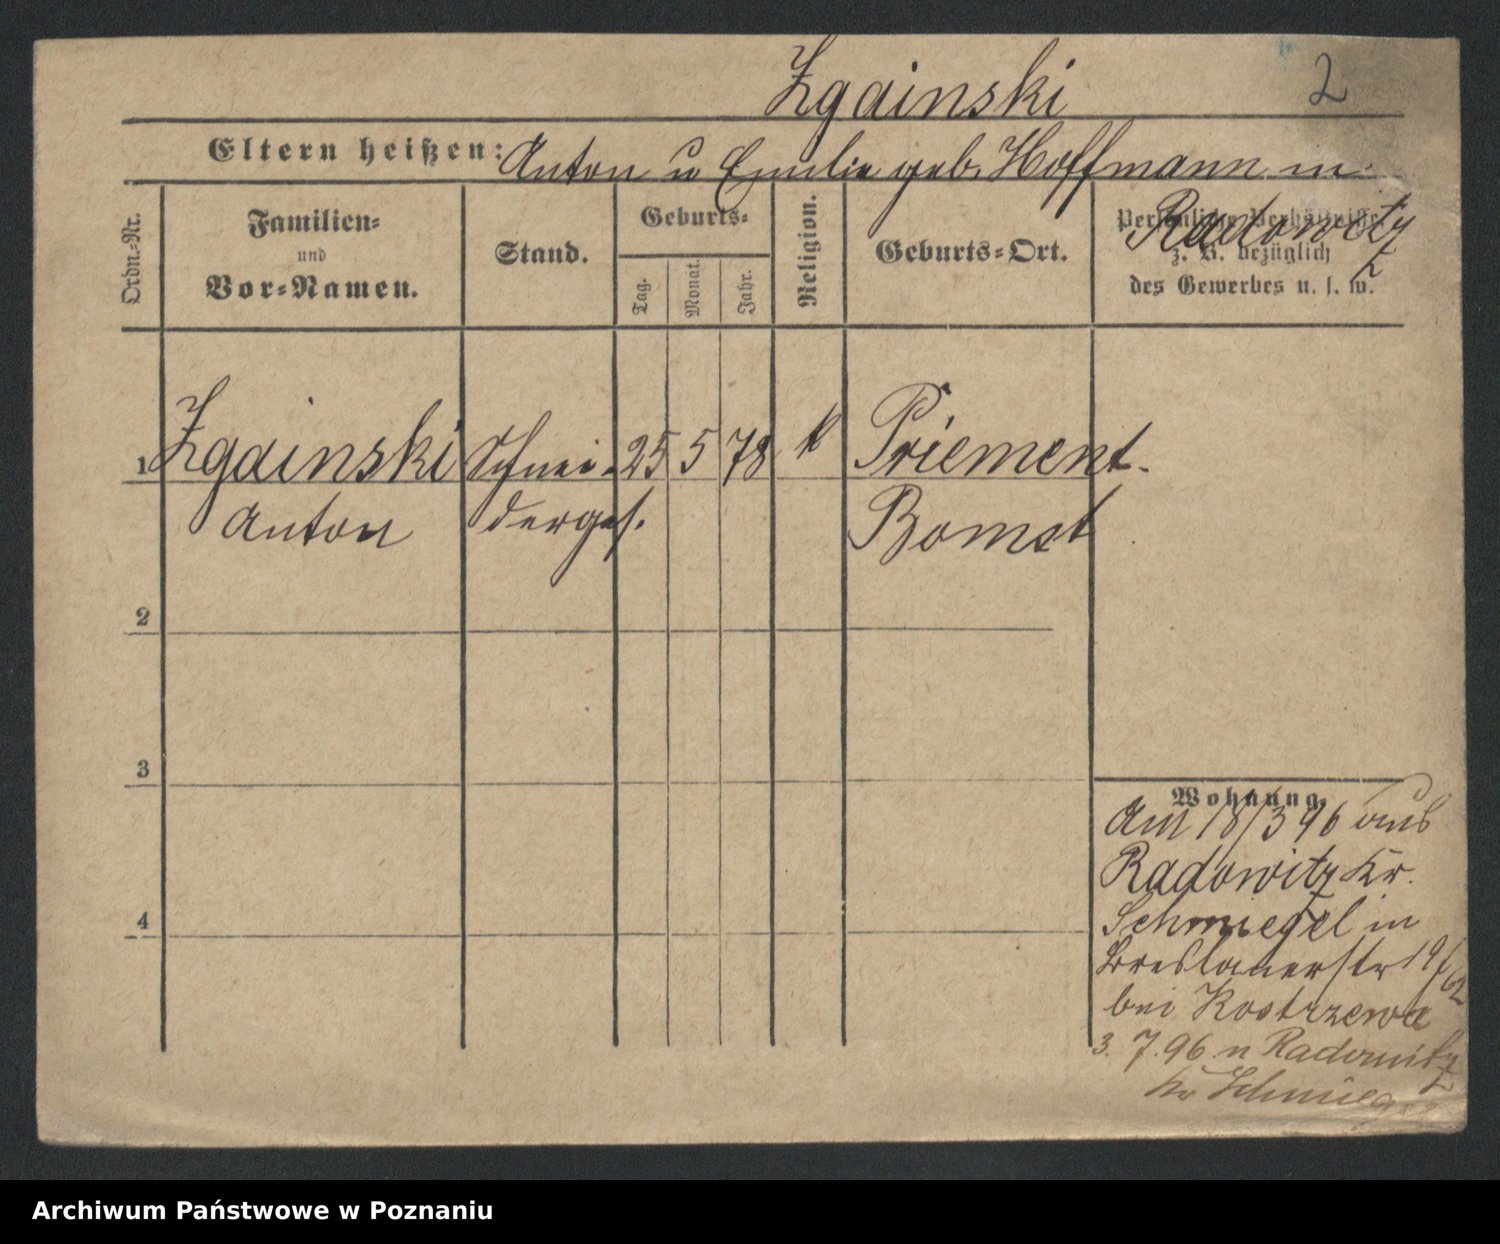 Zgainski 2
Eltern heißen: Anton u Emilie geb. Hoffmann in
Radowitz
Ordn.=Nr.
Familien=
und
Vor=Namen.
Stand.
Geburts=
Tag.
Monat.
Jahr.
Religion.
Geburts=Ort.
Persönliche Verhältnisse
z. B. bezüglich
des Gewerbes u. s. w.
1 Zgainski Schnei- 25 5 78 k Priement-
Anton derges. Bomst
2
3
4
Wohnung.
Am 18/3 96 aus
Radowitz Kr.
Schmiegel in
Breslauerstr 19/
bei Kostrzewa
3. 7. 96 n Radomitz
Kr Schmieg
Archiwum Państwowe w Poznaniu